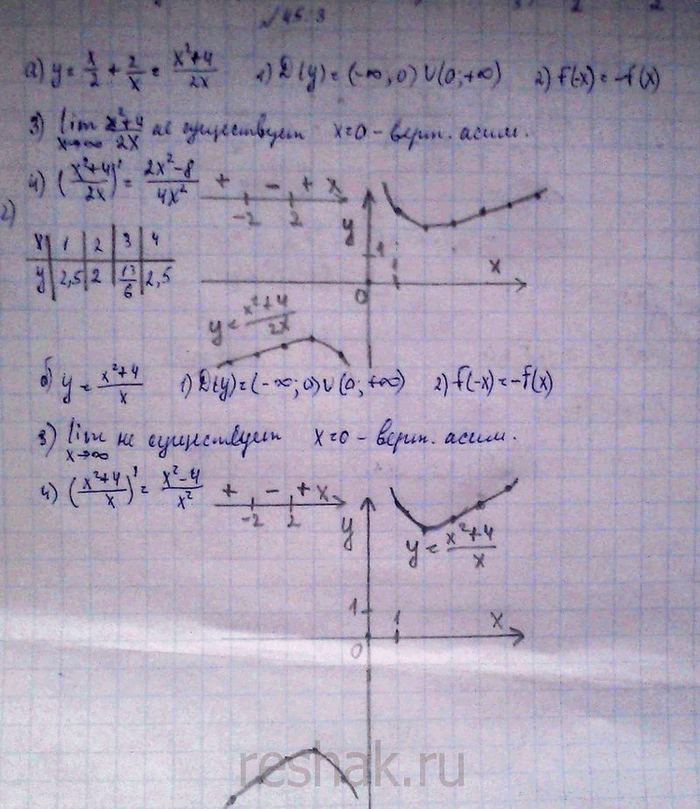 №45.3
а) y = x/2 + 2/x = (x²+4)/2x 1) D(y) = (-∞; 0) ∪ (0; +∞) 2) f(-x) = -f(x)
3) lim x→∞ (x²+4)/2x не существует x=0 - верт. асим.
4) ((x²+4)/2x)' = (2x²-8)/4x² + - + x
-2 2
2)
x 1 2 3 4
y 2,5 2 13/6 2,5
y
1
x
0
1
y = (x²+4)/2x
б) y = (x²+4)/x 1) D(y) = (-∞; 0) ∪ (0; +∞) 2) f(-x) = -f(x)
3) lim x→∞ не существует x=0 - верт. асим.
4) ((x²+4)/x)' = (x²-4)/x² + - + x
-2 2
y
y = (x²+4)/x
1
1
x
0
reshak.ru